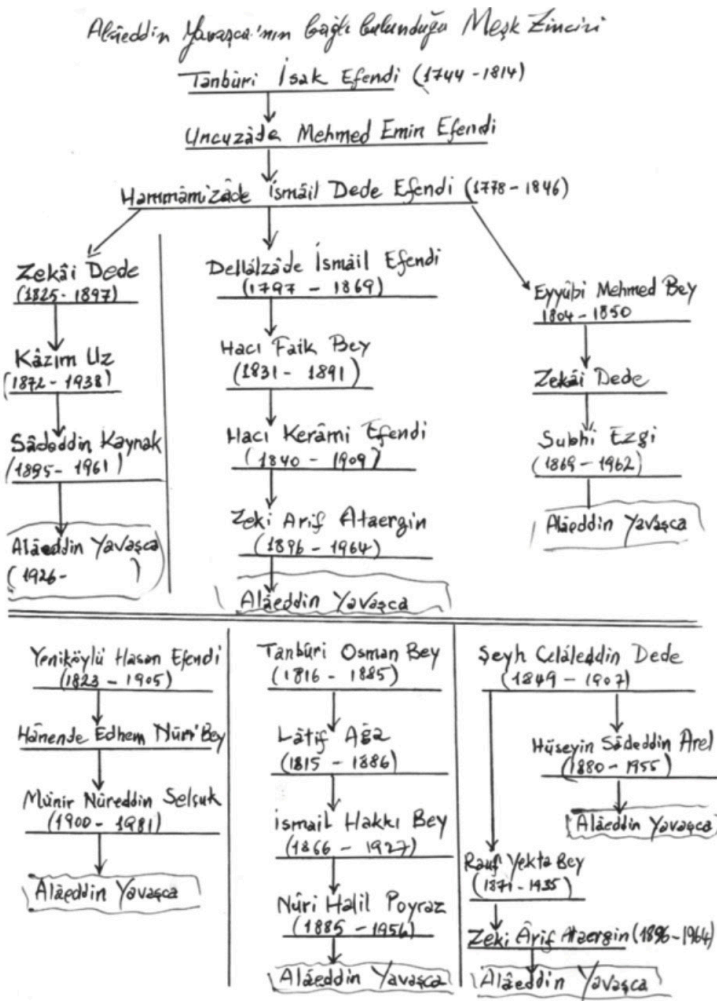 Alâeddin Yavaşca'nın bağlı bulunduğu Meşk Zinciri
Tanbûri İsak Efendi (1744-1814)
Uncuzâde Mehmed Emin Efendi
Hammâmizâde İsmâil Dede Efendi (1778-1846)
Zekâi Dede
(1825-1897)
Kâzım Uz
(1872-1938)
Sâdeddin Kaynak
(1895-1961)
Alâeddin Yavaşca
(1926-     )
Dellâlzâde İsmâil Efendi
(1797 - 1869)
Hacı Faik Bey
(1831- 1891)
Hacı Kerâmi Efendi
(1840 - 1909)
Zeki Arif Ataergin
(1896 - 1964)
Alâeddin Yavaşca
Eyyûbi Mehmed Bey
1804 - 1850
Zekâi Dede
Subhi Ezgi
(1869 - 1962)
Alâeddin Yavaşca
Yeniköylü Hasan Efendi
(1823 - 1905)
Hânende Edhem Nûri Bey
Münir Nûreddin Selçuk
(1900 - 1981)
Alâeddin Yavaşca
Tanbûri Osman Bey
(1816 - 1885)
Lâtif Ağa
(1815 - 1886)
İsmail Hakkı Bey
(1866 - 1927)
Nûri Halil Poyraz
(1885 - 1956)
Alâeddin Yavaşca
Şeyh Celâleddin Dede
(1849 - 1907)
Hüseyin Sâdeddin Arel
(1880 - 1955)
Alâeddin Yavaşca
Rauf Yekta Bey
(1871-1935)
Zeki Ârif Ataergin (1896-1964)
Alâeddin Yavaşca